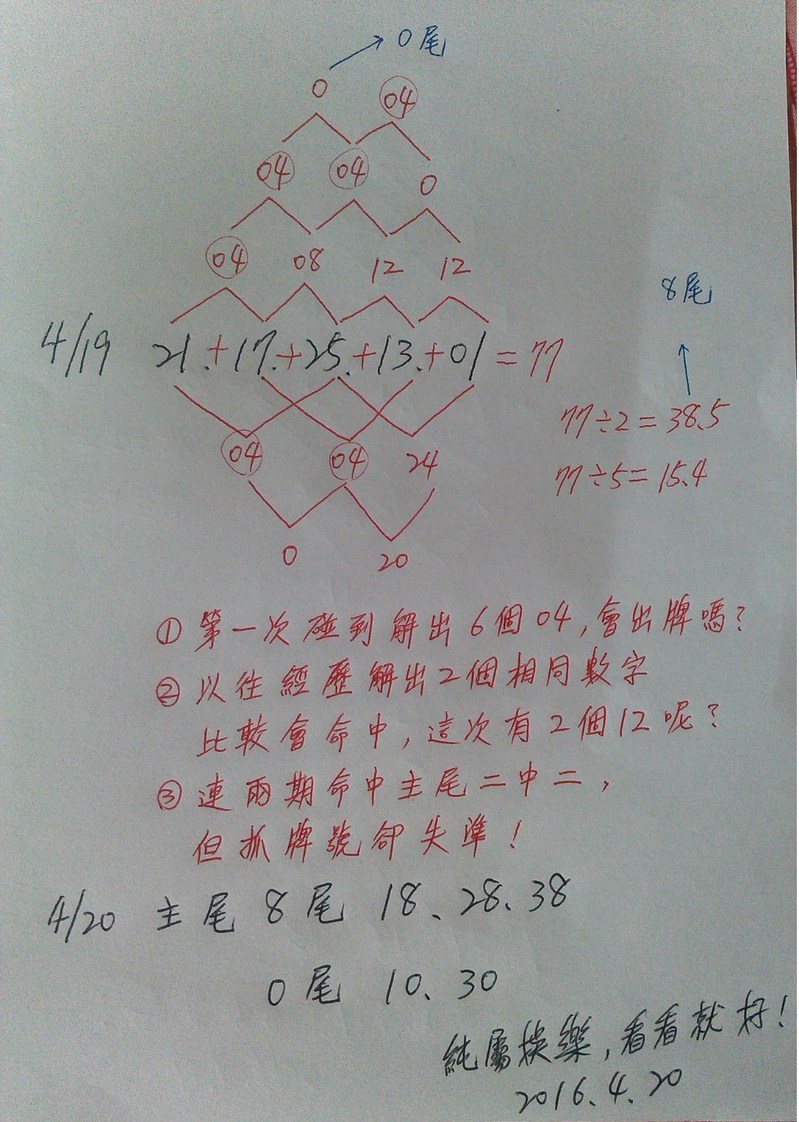 0尾
0 04
04 04 0
04 08 12 12
8尾
4/19 21.+17.+25.+13.+01=77
77÷2=38.5
04 04 24
77÷5=15.4
0 20
① 第一次碰到解出6個04,會出牌嗎?
② 以往經歷解出2個相同數字
比較會命中,這次有2個12呢?
③ 連兩期命中主尾二中二,
但抓牌號卻失準!
4/20 主尾 8尾 18、28、38
0尾 10、30
純屬娛樂,看看就好!
2016.4.20